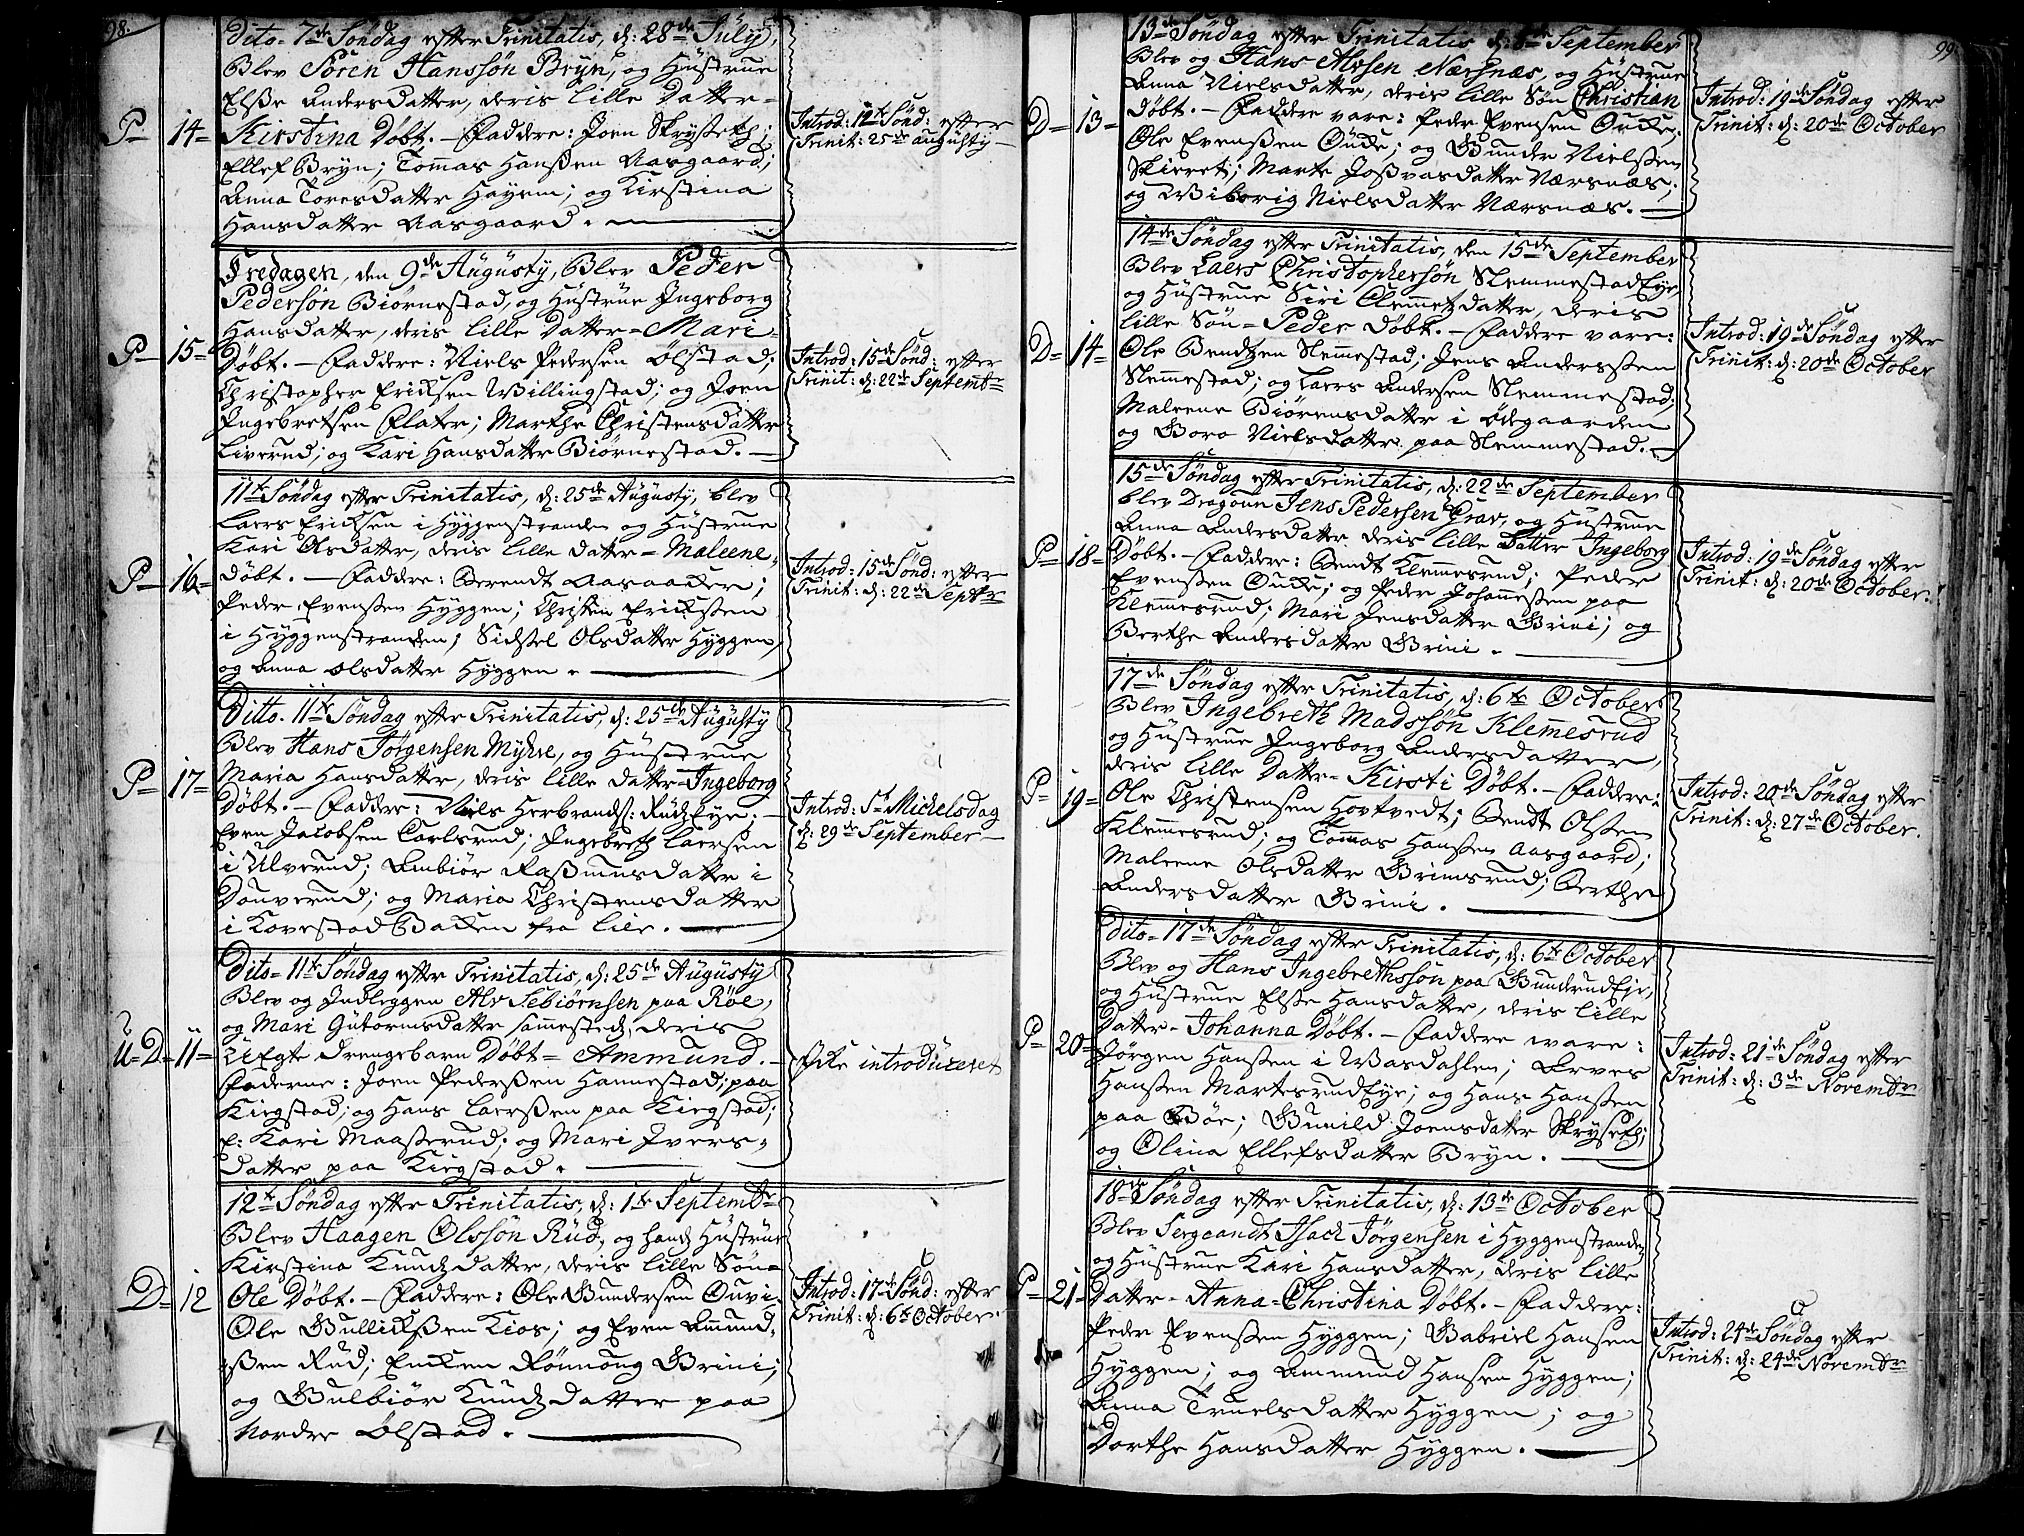 98.
Dito- 7de Söndag efter Trinitatis, d: 28de July,
Blev Sören Hanssön Bryn, og Hüstrue
Elsße Andersdatter, deris lille Datter-
P- 14- Kirstina Döbt. - Faddere: Joen Skryseth;
Ellef Bryn; Tommas Hanßen Aasgaard;
Anna Toresdatter Høyem; og Kirstina
Hansdatter Aasgaard.
Introd: 12te Sönd: efter
Trinit: 25de augusty
Fredagen, den 9de Augusty, Blev Peder
Pedersön Biörnestad, og Hüstrue Ingeborg
Hansdatter, deris lille Datter- Mari-
P- 15- Döbt. - Faddere: Niels Pedersen Ölstad;
Christopher Ericksen Willingstad; og Joen
Ingebretsen Flater; Marthe Christensdatter
Liverud; og Kari Hansdatter Biörnestad.
Introd: 15de Sönd: efter
Trinit: d: 22de Septembr
11te Söndag efter Trinitatis, d: 25de Augusty, blev
Laers Ericksen i Hyggenstranden og Hüstrue
Kari Olsdatter, deris lille datter- Maleene-
P- 16- döbt. - Faddere: Berendt Aasaacker;
Peder Evenßen Hyggen; Christen Erickßen
i Hyggenstranden; Sidsel Olsdatter Hyggen,
og Anna Olsdatter Hyggen.
Introd: 15de Sönd: efter
Trinit: d: 22de Septbr
Ditto- 11te Söndag efter Trinitatis, d: 25de Augusty
Blev Hans Jörgensen Myhre, og Hüstrue
Maria Hansdatter, deris lille datter- Ingeborg
P- 17- Döbt. - Faddere: Niels Herbrands: RüdEye;
Even Jacobsen Carlsrud; Ingebreth Laersen
i Ulverud; Embiör Raßmusdatter i
Dauverud; og Maria Christensdatter
i KovestadBacken fra Lier.
Introd: St Michelsdag
d: 29de September
Dito- 11te Söndag efter Trinitatis, d: 25de Augusty
Blev og Indleggen Alv Sebiörnsen paa Röe,
og Mari Gutormsdatter sammested, deris
U-D- 11- UEgte drengebarn Döbt- Ammund.
Fadderne: Joen Pederßen Hannestad; paa
Kiegstad; og Hans Laerßen paa Kiegstad;
Kari Maaßerud; og Mari Ivers-
datter paa Kiegstad.
Icke introduceret
12te Söndag efter Trinitatis, d: 1te Septembr
Blev Haagen Olssön Rüd, og hans Hüstrue
Kirstina Knudzdatter, deris lille Sön-
D- 12 Ole Döbt. - Faddere: Ole Gundersen Ouvi;
Ole Gullickßen Kios; og Even Amund-
ßen Rud; Encken Rönnoug Brini;
og Gulbiör Knudzdatter paa
Nordre Ölstad.
Introd: 17de Sönd: efter
Trinit: d: 6te October.
99
13de Söndag efter Trinitatis d: 8de September
Blev og Hans Alvsen Nærsnæs, og Hüstrue
Anna Nielsdatter, deris lille Sön Christian
D- 13- Döbt. - Faddere vare: Peder Evensen Oucke;
Ole Evenßen Oude; og Gunder Nielßen
Skieret; Marte Joßvasdatter Nærsnæs;
og Wiborig Nielsdatter Nærsnæs.
Introd: 19de Söndag efter
Trinit: d: 20de October
14de Söndag efter Trinitatis, den 15de September
Blev Laers Christophersön SlemmestadEye,
og Hüstrue Siri Clemmetzdatter, deris
lille Sön- Peder Döbt. - Faddere vare:
D- 14- Ole Bendtzen Slemmestad; Jens Anderßen
Slemmestad; og Laers Andersen Slemmestad;
Maleene Biörensdatter i Ödegaarden
og Boro Nielsdatter paa Slemmestad.
Introd: 19de Söndag efter
Trinit: d: 20de October
15de Söndag efter Trinitatis, d: 22de September
blev Dragoun Jens Pedersen Grav, og Hüstrue
Anna Andersdatter deris lille Datter Ingeborg
P- 18- Döbt. - Faddere: Bendt Klemmesrud; Peder
Evenßen Oucke; og Peder Johannesßen paa
Klemmesrud; Mari Jensdatter Brini; og
Berthe Andersdatter Brini.
Introd: 19de Söndag efter
Trinit: d: 20de October.
17de Söndag efter Trinitatis, d: 6te October
Blev Ingebreth Madssön Klemmesrud
og Hüstrue Ingeborg Andersdatter,
deris lille Datter- Kirsti Döbt. - Faddere:
P- 19- Ole Christensen Hovtvedt; Bendt Olßen
Klemmesrud; og Tommas Hanßen Aasgaard;
Maleene Olsdatter Grimsrud; Berthe
Andersdatter Brini.
Introd: 20de Söndag efter
Trinit: d: 27de October.
Dito- 17de Söndag efter Trinitatis, d: 6te October
Blev og Hans Ingebrethssön paa GunnerudEje,
og Hüstrue Elße Hansdatter, deris lille
Datter- Johanna Döbt. - Faddere ware:
P- 20- Jörgen Hanßen i Wasdahlen; Arves
Hanßen MartesrudEye; og Hans Hanßen
paa Böe; Gunild Joensdatter Skryseth;
og Olina Ellefsdatter Bryn.
Introd: 21de Söndag efter
Trinit: d: 3de Novembr
18de Söndag efter Trinitatis, d: 13de October
Blev Sergeandt Isach Jörgensen i Hyggenstranden
og Hüstrue Kari Hansdatter, deris lille
P- 21- Datter- Anna-Christina Döbt. - Faddere:
Peder Evenßen Hyggen; Gabriel Hansen
Hyggen; og Ammund Hansen Hyggen;
Anna Truelsdatter Hyggen; og
Dorthe Hansdatter Hyggen.
Introd: 24de Söndag efter
Trinit: d: 24de Novembr